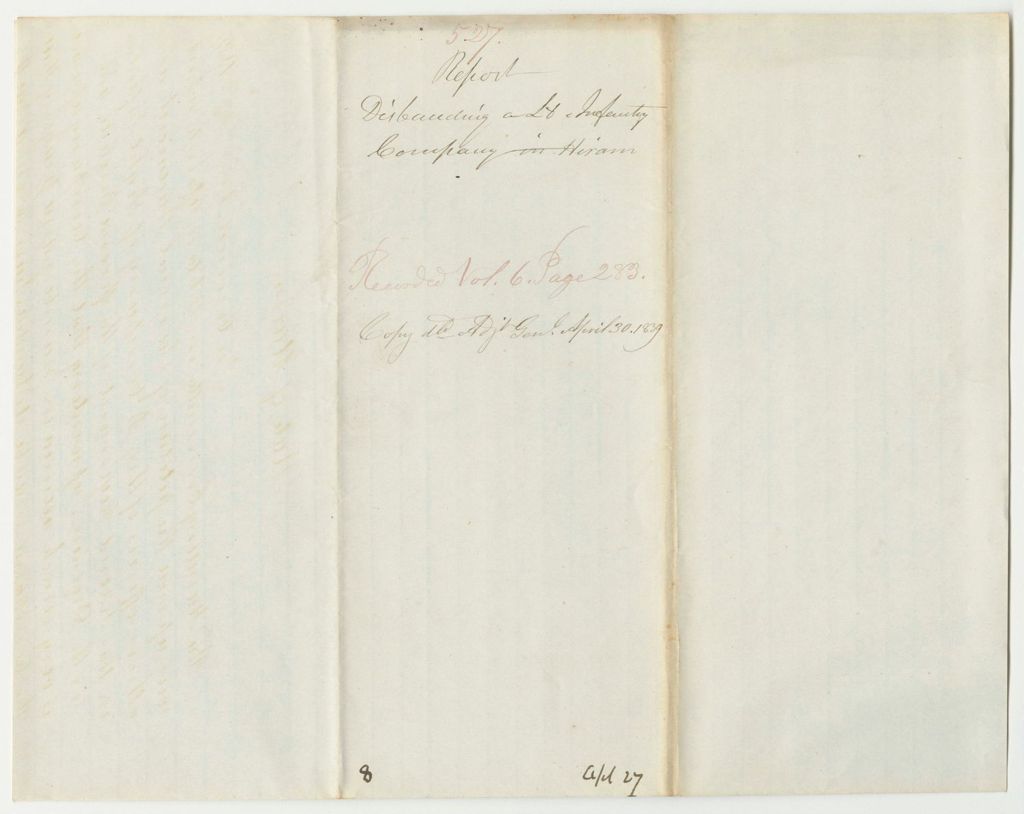 527.
Report
Disbanding a Lt Infantry
Company in Hiram
Recorded Vol. 6. Page 283.
Copy dld Adjt Genl. April 30. 1839
8
Apl 27